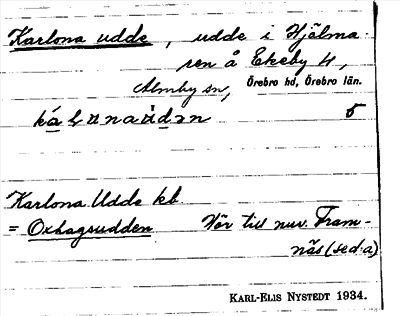 Karlona udde, udde i Hjälma-
ren å Ekeby 4,
Almby sn, Örebro hd, Örebro län.
5
Karlona Udde kb.
= Oxhagsudden Hör till nuv. Fram-
näs (se d:a)
KARL-ELIS NYSTEDT 1934.